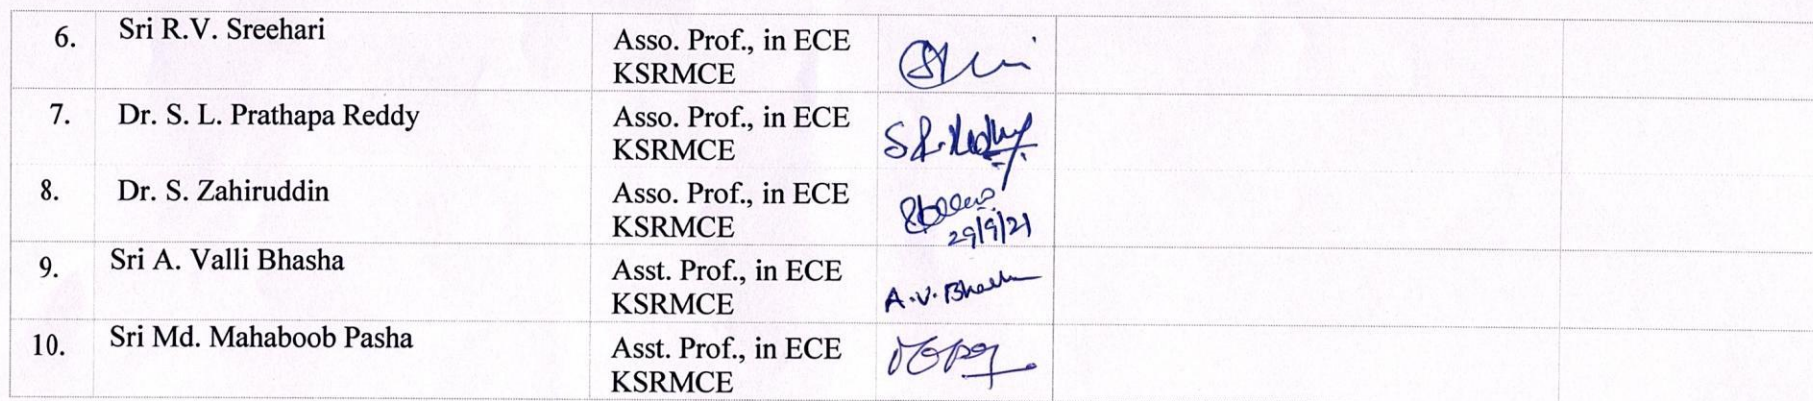 6. Sri R.V. Sreehari Asso. Prof., in ECE
KSRMCE
7. Dr. S. L. Prathapa Reddy Asso. Prof., in ECE
KSRMCE S.L. Reddy
8. Dr. S. Zahiruddin Asso. Prof., in ECE
KSRMCE 29/9/21
9. Sri A. Valli Bhasha Asst. Prof., in ECE
KSRMCE A.V. Bhasha
10. Sri Md. Mahaboob Pasha Asst. Prof., in ECE
KSRMCE